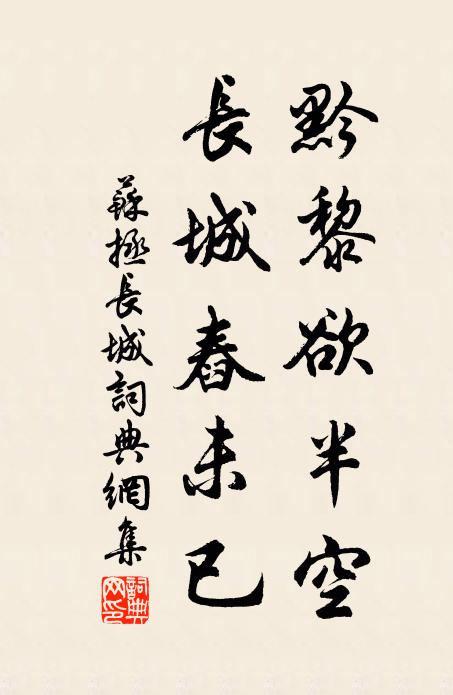 黔黎欲半空
長城舂未已
蘇拯長城詞典網集
詞典网印